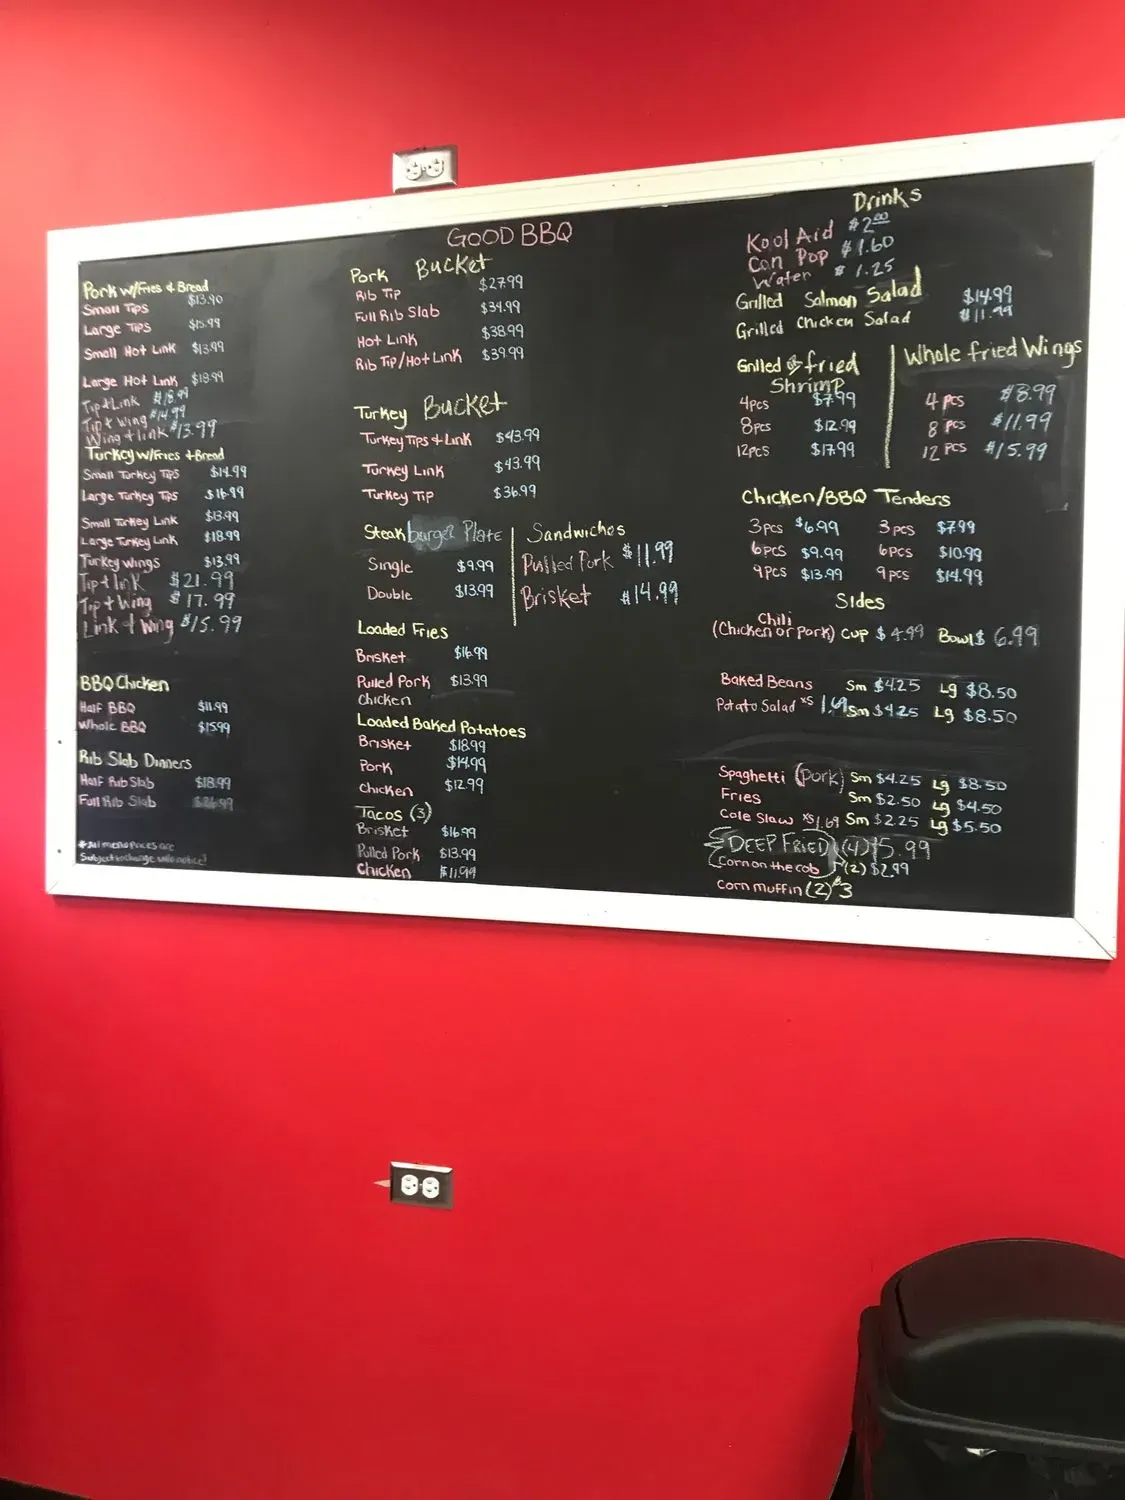 GOOD BBQ
Pork w/Fries & Bread
Small Tips $13.90
Large Tips $15.99
Small Hot Link $13.99
Large Hot Link $18.99
Tip & Link $18.99
Tip & Wing $14.99
Wing & link $13.99
Turkey w/Fries & Bread
Small Turkey Tips $14.99
Large Turkey Tips $16.99
Small Turkey Link $13.99
Large Turkey Link $18.99
Turkey Wings $13.99
Tip & link $21.99
Tip & Wing $17.99
Link & Wing $15.99
BBQ Chicken
Half BBQ $11.99
Whole BBQ $15.99
Rib Slab Dinners
Half Rib Slab $18.99
Full Rib Slab
*All menu prices are
Subject to change w/o notice!
Pork Bucket
Rib Tip $27.99
Full Rib Slab $34.99
Hot Link $38.99
Rib Tip/Hot Link $39.99
Turkey Bucket
Turkey Tips & Link $43.99
Turkey Link $43.99
Turkey Tip $36.99
Steak burger Plate
Single $9.99
Double $13.99
Sandwiches
Pulled Pork $11.99
Brisket $14.99
Loaded Fries
Brisket $16.99
Pulled Pork $13.99
Chicken
Loaded Baked Potatoes
Brisket $18.99
Pork $14.99
Chicken $12.99
Tacos (3)
Brisket $16.99
Pulled Pork $13.99
Chicken $11.99
Drinks
Kool Aid $2.00
Can Pop $1.60
Water $1.25
Grilled Salmon Salad $14.99
Grilled Chicken Salad $11.99
Grilled or fried
Shrimp
4pcs $7.99
8pcs $12.99
12pcs $17.99
Whole fried Wings
4 pcs $8.99
8 pcs $11.99
12 pcs $15.99
Chicken/BBQ Tenders
3pcs $6.99 3pcs $7.99
6pcs $9.99 6pcs $10.99
9pcs $13.99 9pcs $14.99
Sides
Chili
(Chicken or Pork) Cup $4.99 Bowl $ 6.99
Baked Beans Sm $4.25 Lg $8.50
Potato Salad xs 1.69 Sm $4.25 Lg $8.50
Spaghetti (pork) Sm $4.25 Lg $8.50
Fries Sm $2.50 Lg $4.50
Cole Slaw xs 1.69 Sm $2.25 Lg $5.50
DEEP FRIED (4) $5.99
Corn on the cob (2) $2.99
Corn Muffin (2) $3